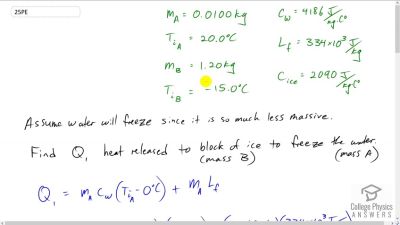 25PE
m_A = 0.0100 kg
C_w = 4186 J/kg·C°
T_iA = 20.0°C
L_f = 334×10³ J/kg
m_B = 1.20 kg
C_ice = 2090 J/kg C°
T_iB = -15.0°C
Assume water will freeze since it is so much less massive.
Find Q₁ heat released to block of ice to freeze the water.
(mass B) (mass A)
Q₁ = m_A C_w (T_iA - 0°C) + m_A L_f
College Physics
ANSWERS